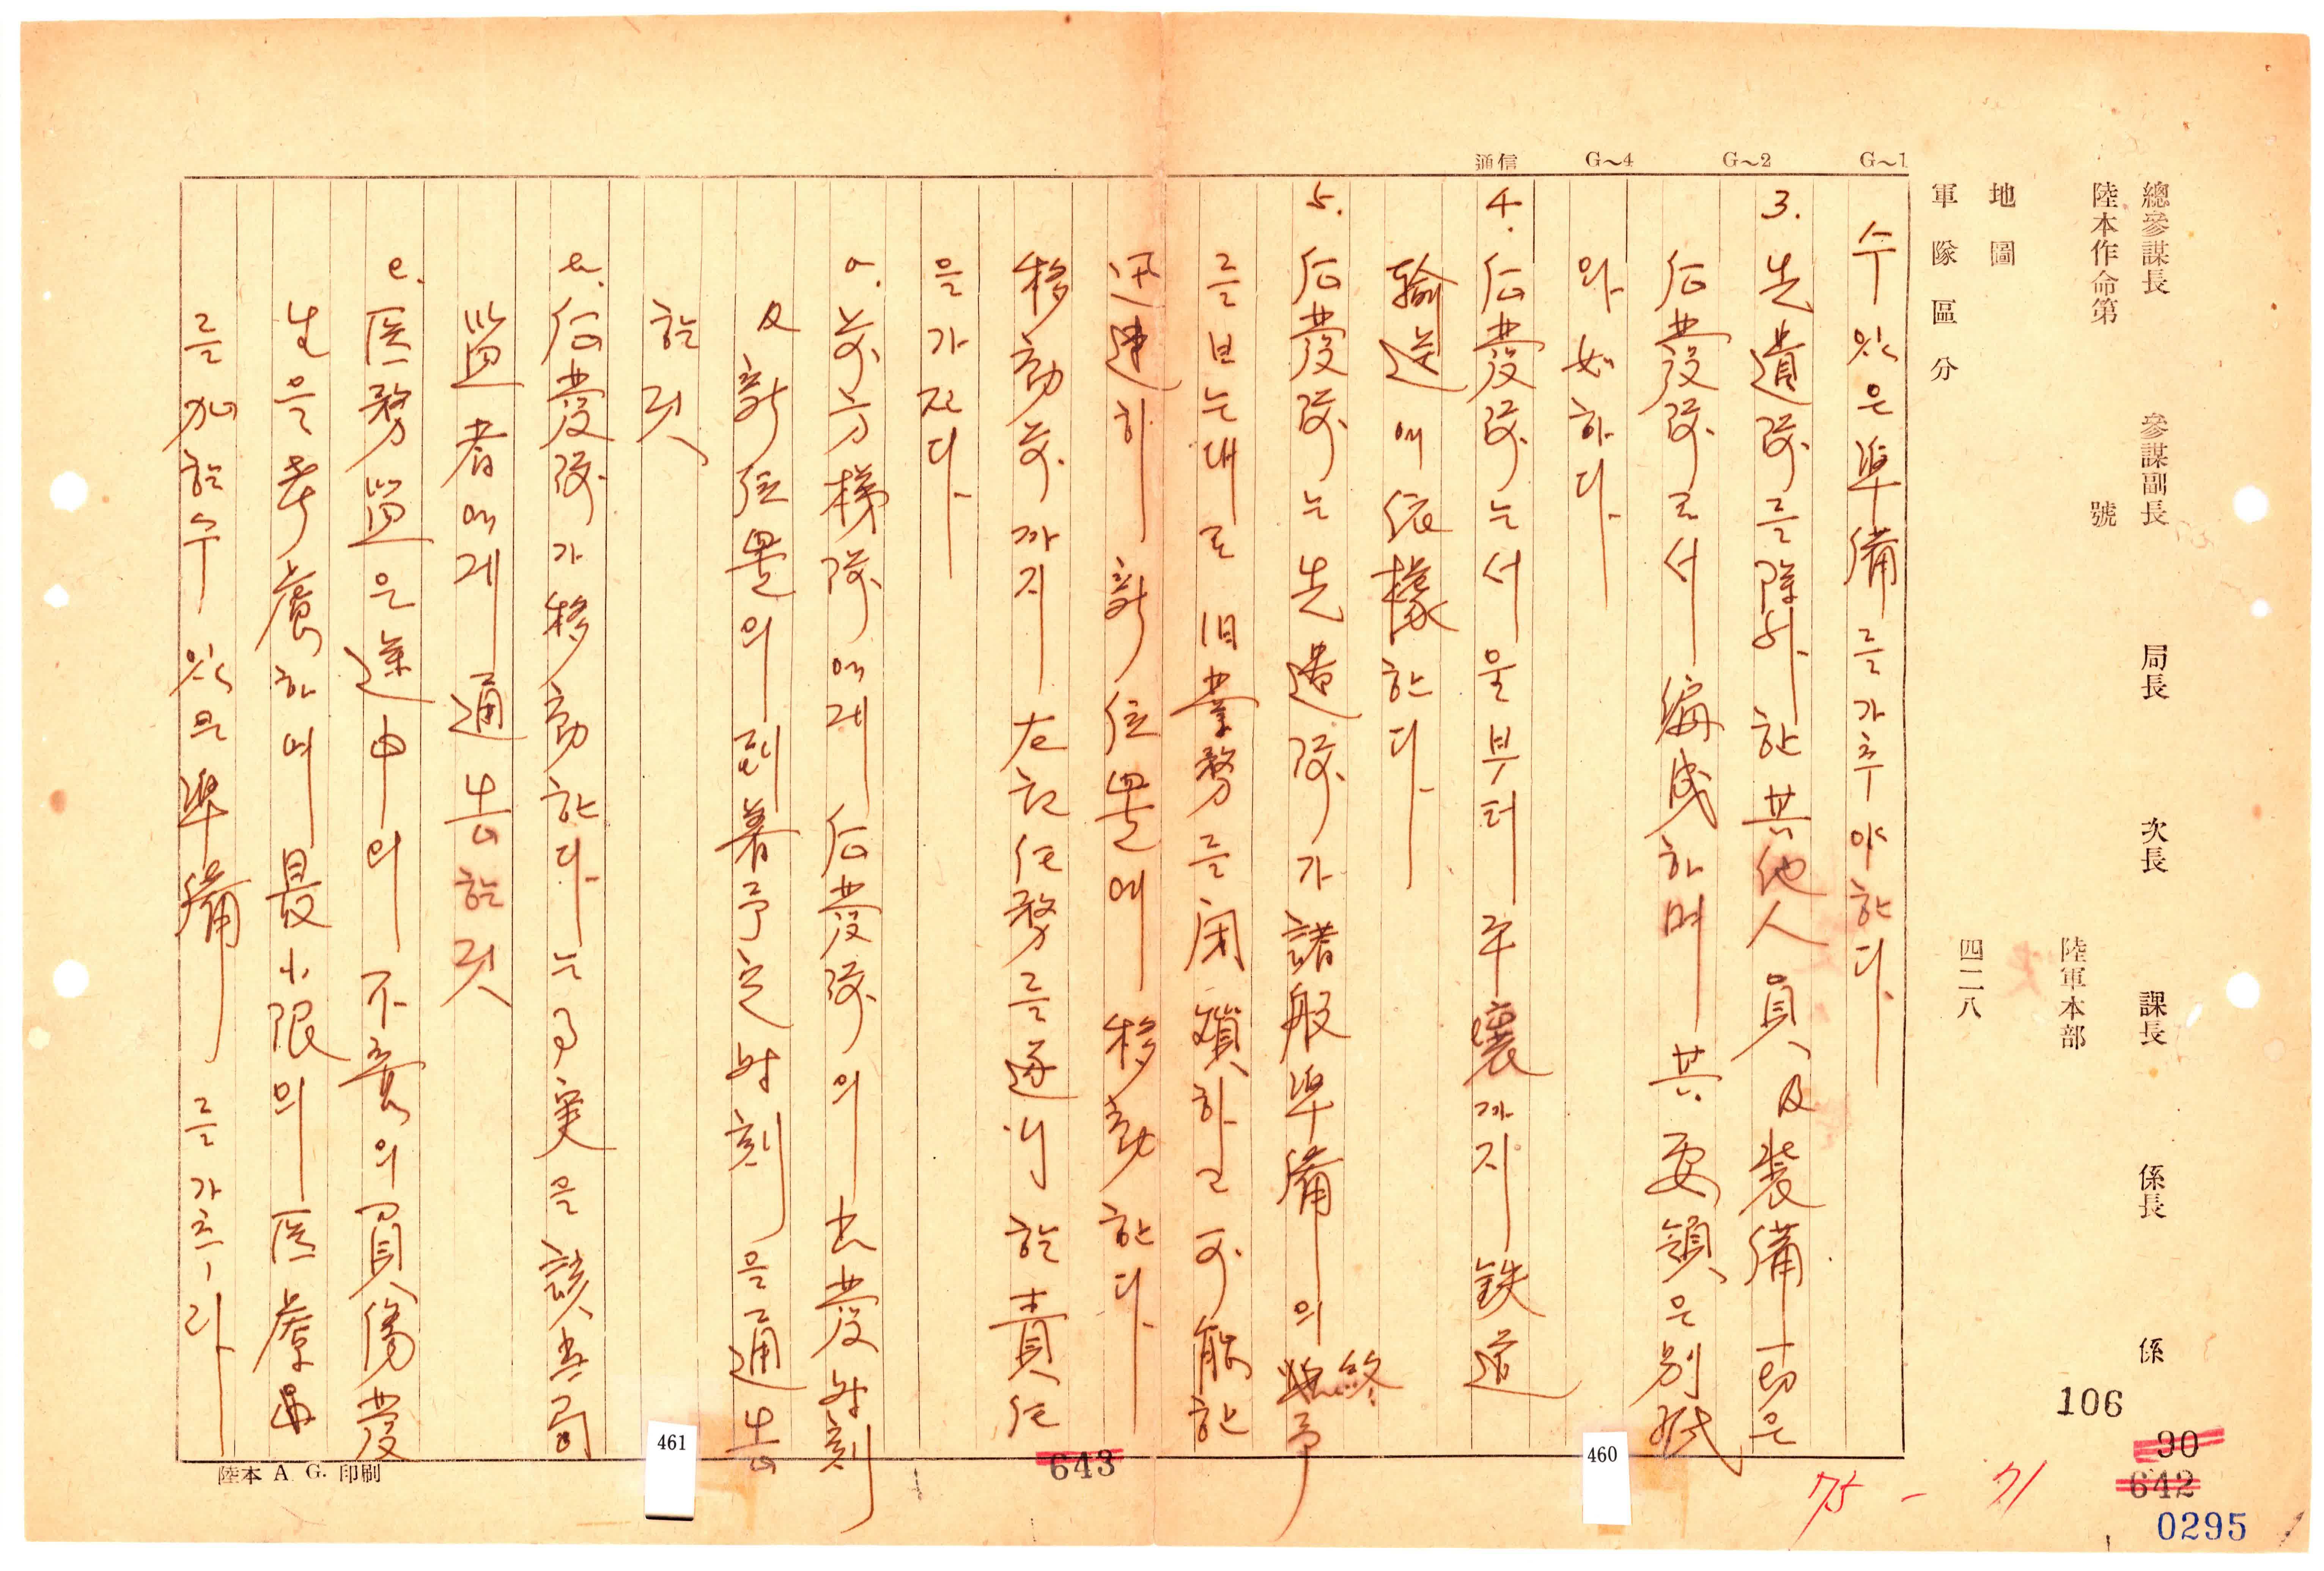 總參謀長 參謀副長 局長 次長 課長 係長 係
陸本作命第 號
陸軍本部
地圖
四二一八
軍隊區分
G~1 G~2 G~4 通信
수 있은 準備를 가추야 한다.
3. 先遣隊를 除外한 其他人員 及 裝備一切은
后發隊로서 編成하며 其 要領은 別紙
와 如하다.
4. 后發隊는 서울부터 平壤까지 鉄道
輸送에 依據한다.
5. 后發隊는 先遣隊가 諸般準備의 終了
를 보는대로 旧業務를 闭鎖하고 可能한
迅速히 新位置에 移動한다.
移動前까지 左記任務를 遂行할 責任
을 가진다.
a. 前方梯隊에게 后發隊의 出發時刻
及 新位置의 到着予定時刻을 通告
할 것
b. 后發隊가 移動한다는 事実을 該当局
監者에게 通告할 것
c. 医務監은 途中의 不意의 負傷發
生을 考慮하여 最小限의 医療
를 加할 수 있은 準備를 가추라
陸本 A. G. 印刷
461
643
460
106
90
642
0295
75 - 71